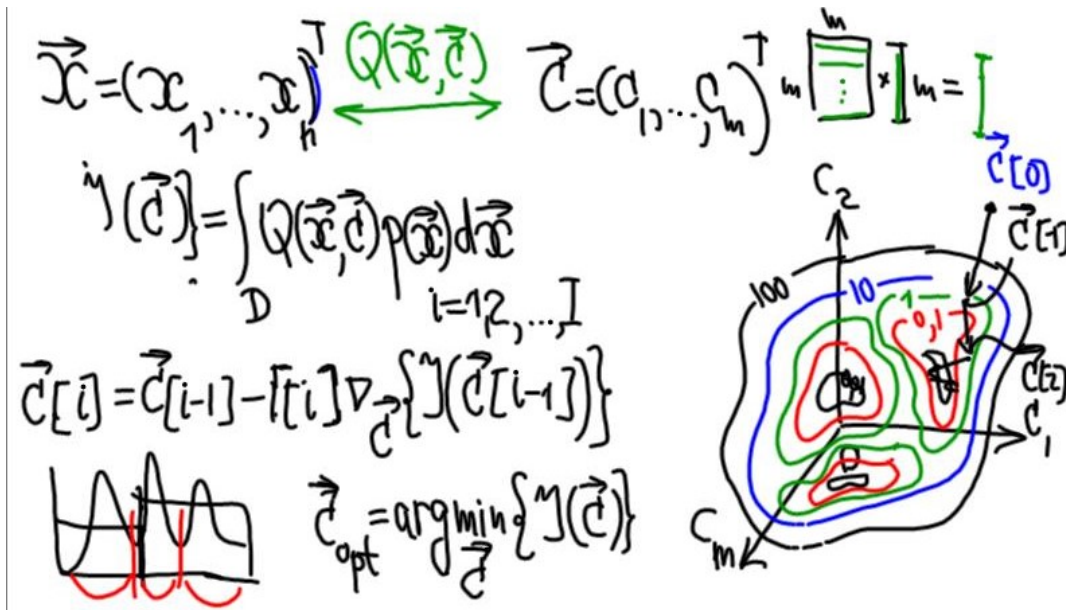 x⃗ = (x₁, ..., xₙ)ᵀ Q(x⃗, c⃗) c⃗ = (c₁, ..., cₘ)ᵀ m m × m =
J(c⃗)} = ∫ Q(x⃗, c⃗) p(x⃗) dx⃗
D
i = 1,2, ..., I
c⃗[i] = c⃗[i-1] - Γ[i] ∇c⃗ {J(c⃗[i-1])}
c⃗opt = arg min c⃗ {J(c⃗)}
c⃗[0]
C₂
c⃗[1]
100 10 1 0,1
c⃗[2]
C₁
Cₘ